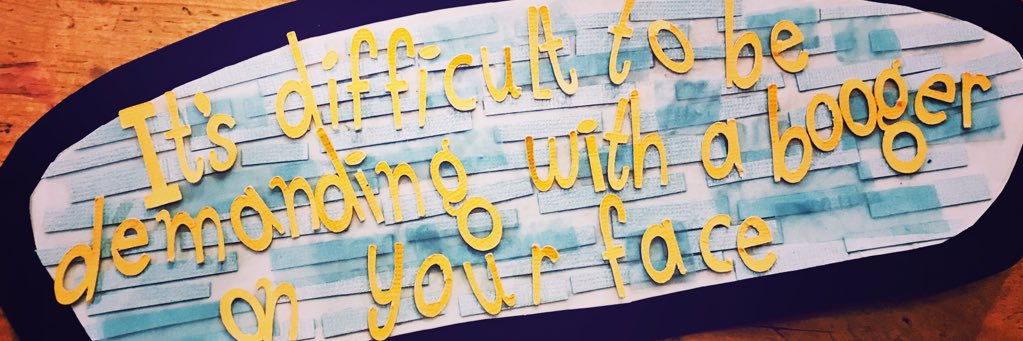 It's difficult to be
demanding with a booger
on your face